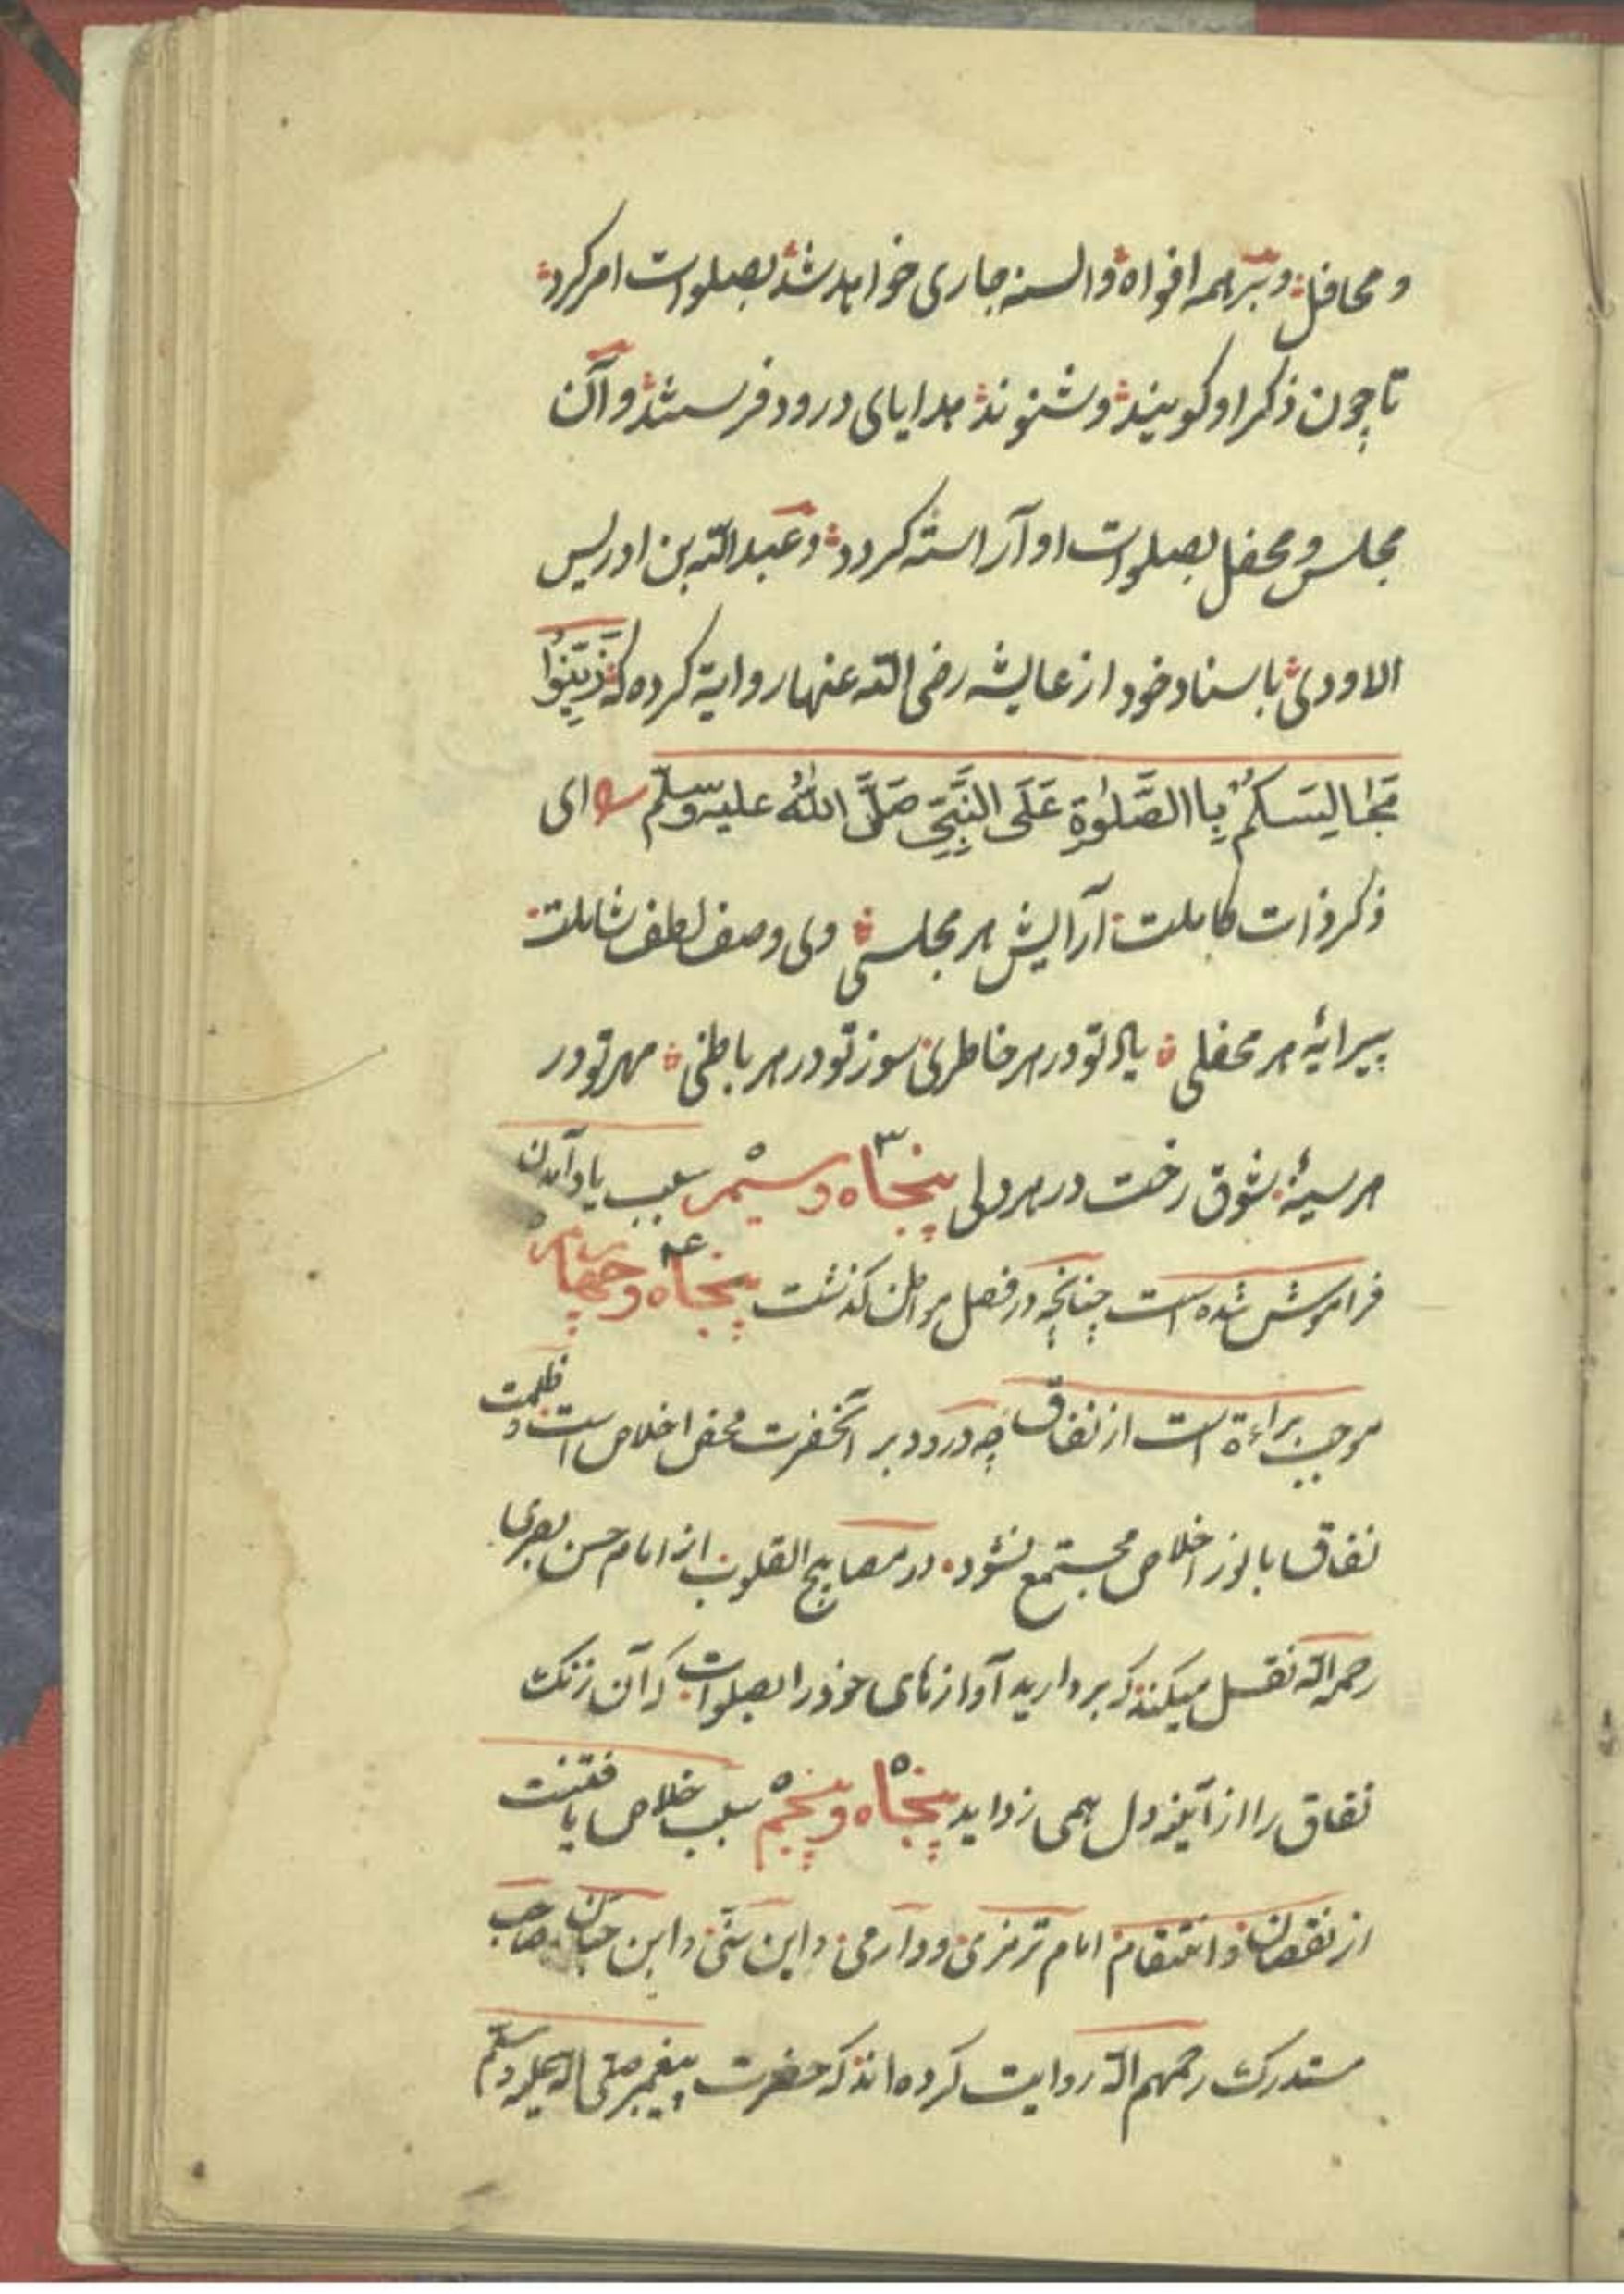 و محافل و بر همه افواه و السنه جاری خواهد شد بصلوات امر کرد
تا چون ذکر او کویند و شنوند هدایای درود فرستند و آن
مجلس و محفل بصلوات او آراسته کردد و عبدالله بن ادریس
الاودی باسناد خود از عایشه رضی الله عنها روایة کرده که زَیِّنُوا
مَجَالِسَکُمْ بِاالصَّلٰوةِ عَلَی النَّبِیِّ صَلَّ اللهُ علیه وسلّم ای
ذکر ذات کاملت آرایش هر مجلسی وی وصف لطف شاملت
پیرایهٔ هر محفلی یاد تو در هر خاطری سوز تو در هر باطنی مهر تو در
هر سینهٔ شوق رخت در هر دلی پنجاه و سیم ۵۳ سبب یاد آمدن
فراموش شده است چنانچه در فصل مواطن کذشت پنجاه و چهارم ۵۴
موجب براءة است از نفاق چه درود بر آنحضرت محض اخلاص است و ظلمت
نفاق با نور اخلاص مجتمع نشود در مصابیح القلوب از امام حسن بصری
رحمه الله نقل میکنند که بردارید آوازهای خود را بصلوات که آن زنک
نفاق را از آیینه دل همی زداید پنجاه و پنجم ۵۵ سبب خلاص یافتنست
از نقصان و انتقام امام ترمزی و دارمی و ابن سنّی و ابن حبّان و صاحب
مستدرک رحمهم الله روایت کرده اند که حضرت پیغمبر صلی الله علیه وسلّم